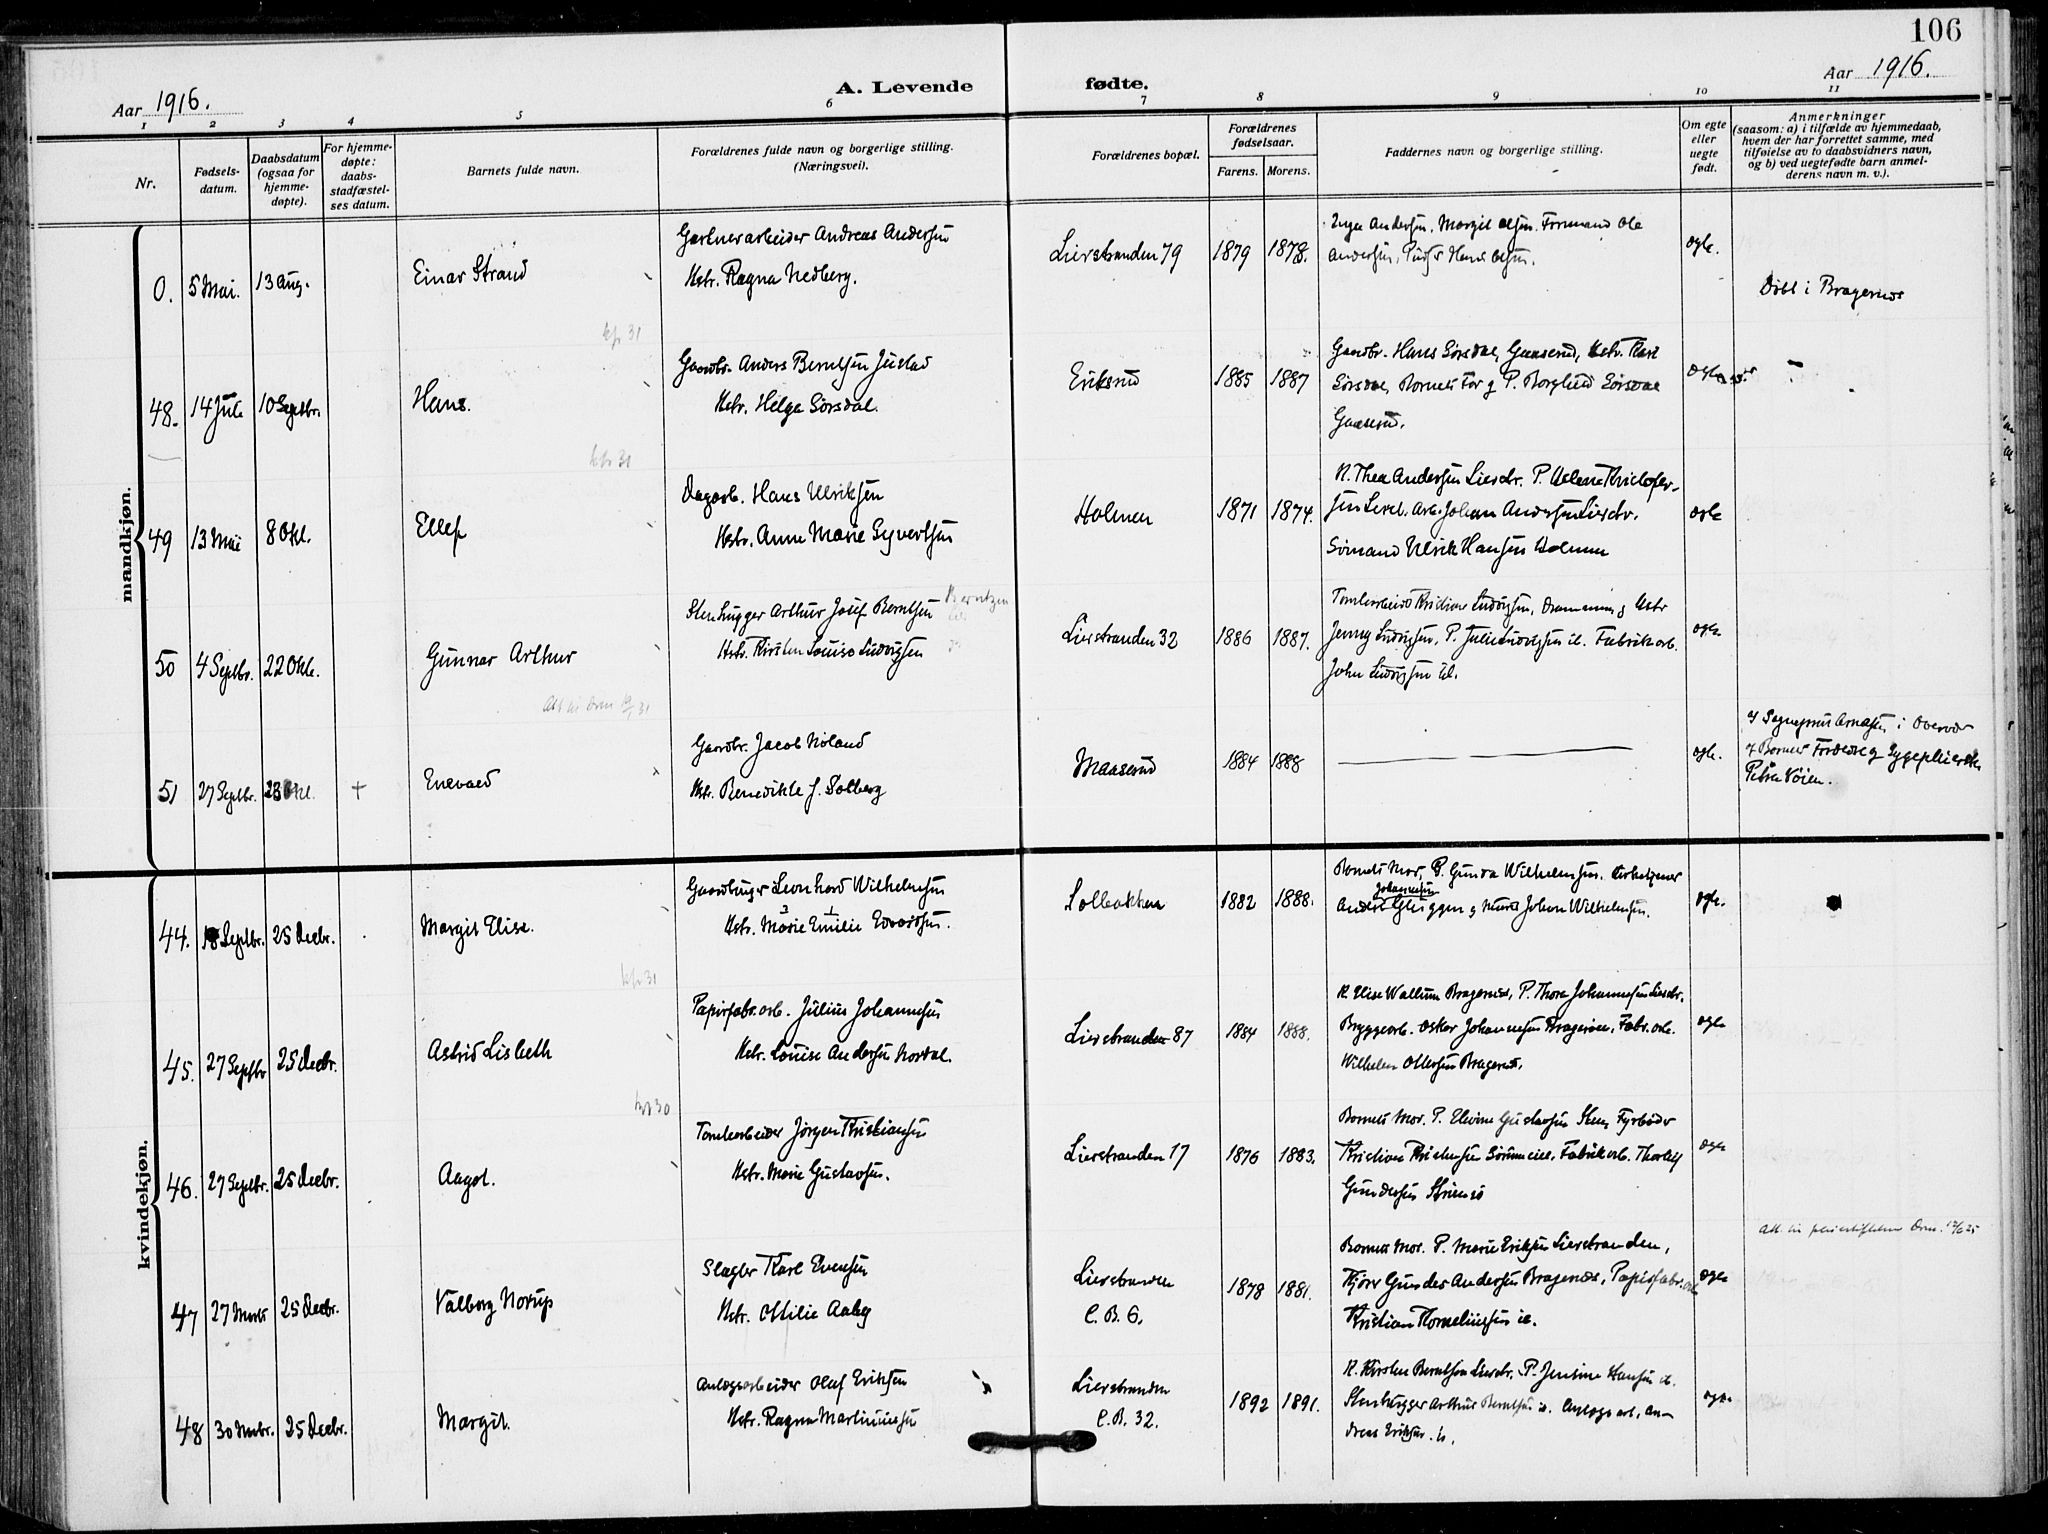 106
Aar 1916.
A. Levende fødte.
Aar 1916.
1 2 3 4 5 6 7 8 9 10 11
Nr.
Fødsels-
datum.
Daabsdatum
(ogsaa for
hjemme-
døpte).
For hjemme-
døpte:
daabs-
stadfæstel-
ses datum.
Barnets fulde navn.
Forældrenes fulde navn og borgerlige stilling.
(Næringsvei).
Forældrenes bopæl.
Forældrenes
fødselsaar.
Farens. Morens.
Faddernes navn og borgerlige stilling.
Om egte
eller
uegte
født.
Anmerkninger
(saasom: a) i tilfælde av hjemmedaab,
hvem der har forrettet samme, med
tilføielse av to daabsvidners navn,
og b) ved uegtefødte barn anmel-
derens navn m. v.).
mandkjøn.
0. 5 Mai. 13 Aug. Einar Strand
Gartnerarbeider Andreas Andersen
Hstr. Ragna Hedberg.
Lierstranden 79 1879 1878.
Inga Andersen, Margit Olsen. Formand Ole
Andersen,
egte.
Døbt i Bragernes
kfr 31
48. 14 Juli 10 Septbr. Hans.
Gaardbr. Anders Berntsen Justad
Hstr. Helga Sørsdal.
Eriksrud 1885 1887
Gaardbr. Hans Sørsdal, Gaaserud, Hstr. Kari
Sørsdal, Barnets Far og P. Borghild Sørsdal
Gaaserud.
egte
kfr 31
49 13 Mai 8 Okt. Ellef
Dagarb. Hans Ulriksen
Hstr. Anne Marie Syvertsen
Holmen 1871 1874.
K. Thea Andersen Lierstr. P. Helene Kristofer-
sen Arb. Johan Andersen Lierstr.
Sømand Ulrik Hansen Holmen
egte
50 4 Septbr. 22 Okt. Gunnar Arthur
Stenhugger Arthur Josef Berntsen
Berntzen
Hstr. Kirsten Louise Ludvigsen
Lierstranden 32 1886 1887.
Tomtearbeid. Kristian Ludvigsen, Drammen og Hstr
Jenny Ludvigsen, P. Julie Ludvigsen ib. Fabrikarb.
John Ludvigsen ib.
egte
51 27 Septbr. 23 Okt. + Enevald
Gaardbr. Jacob Høland
Hstr. Benedikte J. Solberg
Maaserud 1884 1888
egte.
af Sognepræst Arnesen i Overvær
af Barnets Forældre og Sygepleierske
Petra Vöien.
kvindekjøn.
44. 18 Septbr. 25 Decbr. Margit Elise.
Gaardbruger Leonhard Wilhelmsen
Hstr. Marie Emilie Edvardsen.
Solbakken 1882 1888.
Barnets Mor, P. Gunda Wilhelmsen.
Johannesen
Gluggen og Johan Wilhelmsen.
egte.
kfr 31
45. 27 Septbr 25 Decbr. Astrid Lisbeth
Papirfabr.arb. Julius Johannesen
Hstr. Louise Andersen Nordal.
Lierstranden 87 1884 1888.
K. Elise Wallum Bragernes, P. Thora Johannesen Lierstr.
Bryggearb. Oskar Johannesen Bragerøen, Fabr.arb.
Wilhelm Ottersen Bragernes.
egte
kfr 30
46. 27 Septbr. 25 Decbr. Aagot.
Tomtearbeider Jørgen Kristiansen
Hstr. Marie Gustavsen.
Lierstranden 17 1876 1883.
Barnets Mor. P. Elvine Gustavsen Fyrbøder
Kristian Kristensen Fabrikarb. Thorleif
Gundersen Strømsø
egte
47 27 Marts 25 Decbr. Valborg Norup
Slagter Karl Evensen
Hstr. Ottilie Aaby
Lierstranden
C. B. 6.
1878 1881.
Barnets Mor. P. Marie Eriksen Lierstranden,
Kjører Gunder Andersen Bragernes, Papirfabr.arb
Kristian Kornelinssen ib.
egte
48 30 Novbr. 25 Decbr. Margit.
Anlægsarbeider Olaf Eriksen
Hstr. Ragna Martiniussen
Lierstranden
C. B. 32.
1892 1891.
K. Kirsten Berntsen Lierstr., P. Jensine Hansen ib.
Stenhugger Arthur Berntsen ib. Anlægsarb. An-
dreas Eriksen ib.
egte